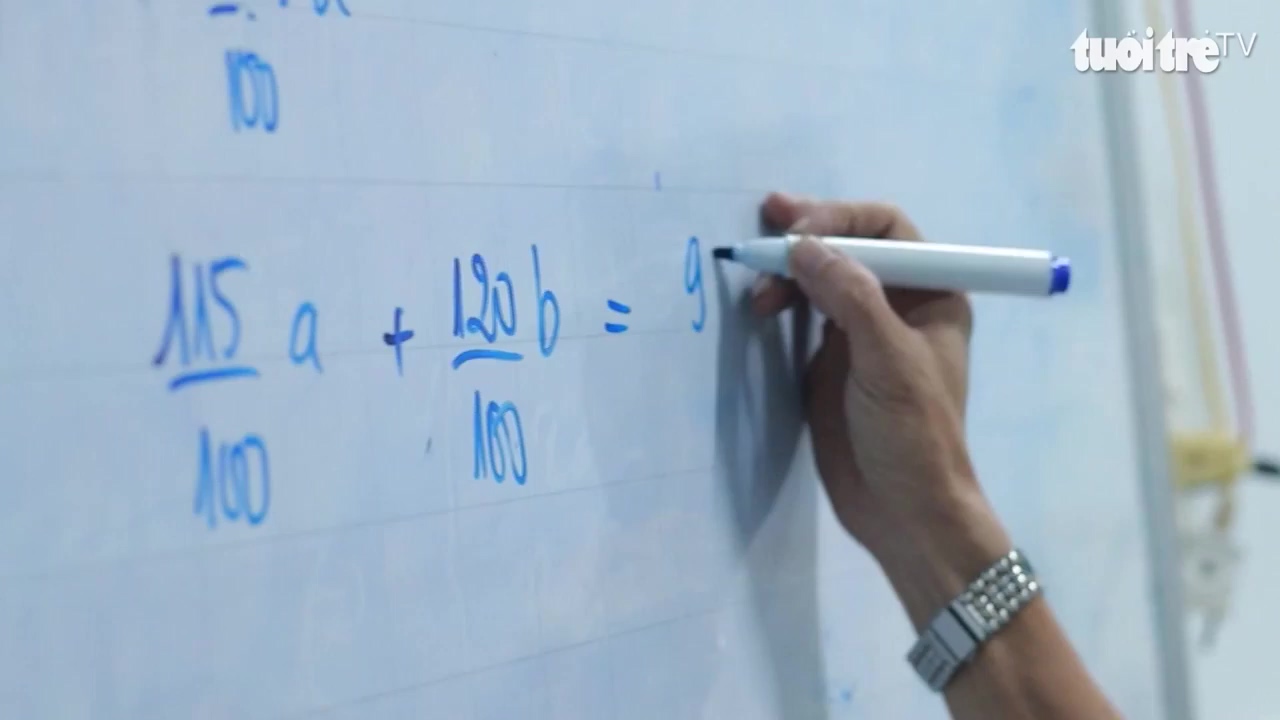 tuổi trẻ TV
100
115/100 a + 120/100 b = 9